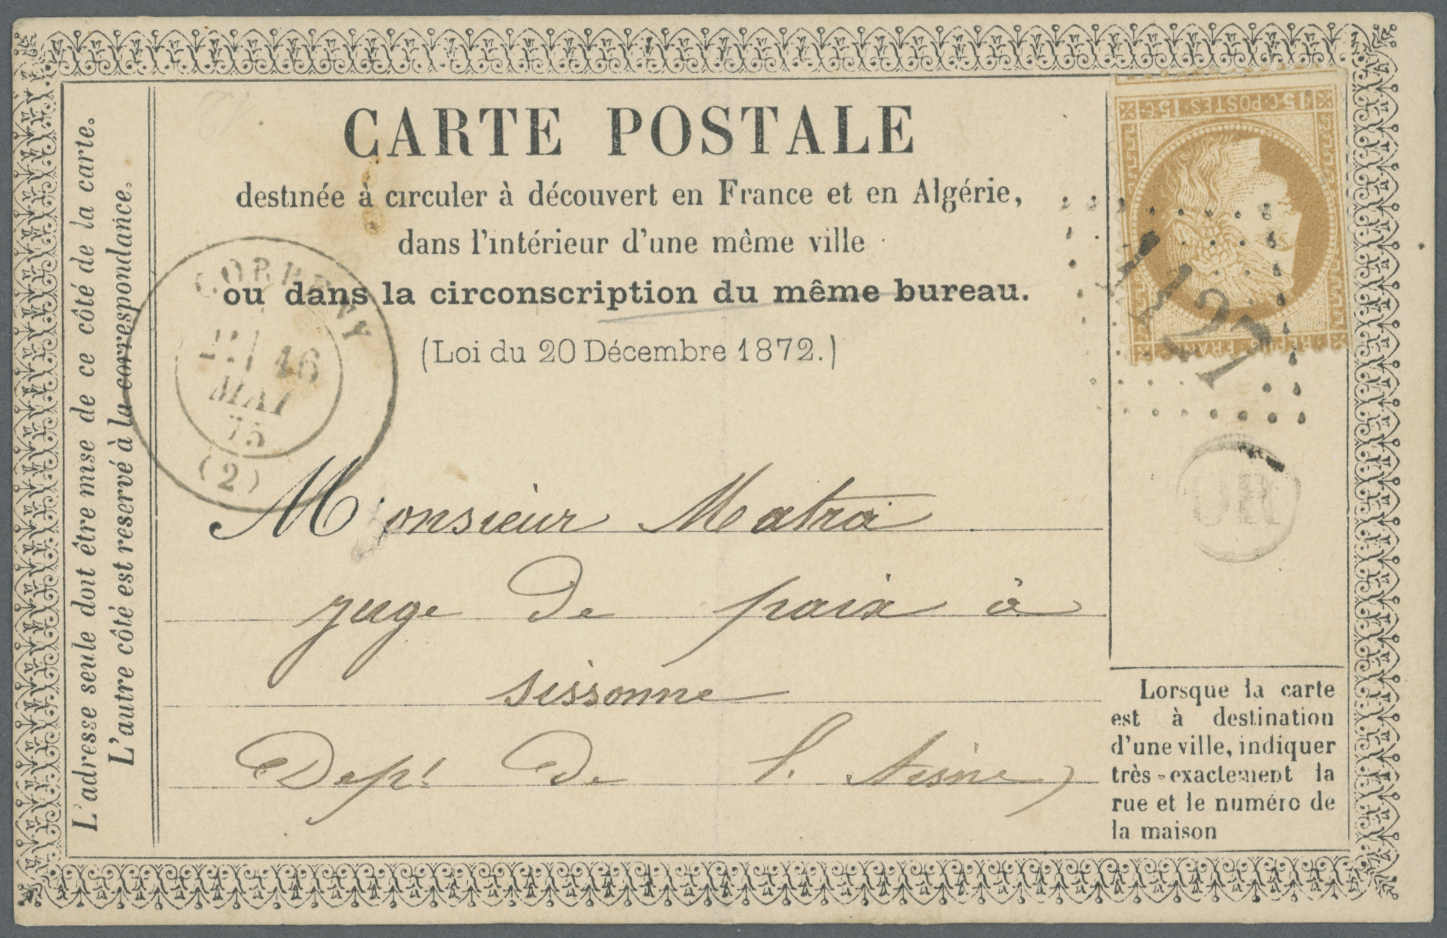 CARTE POSTALE
destinée à circuler à découvert en France et en Algérie,
dans l'intérieur d'une même ville
ou dans la circonscription du même bureau.
(Loi du 20 Décembre 1872.)
L'adresse seule doit être mise de ce côté de la carte.
L'autre côté est reservé à la correspondance.
CORBENY
16
MAI
75
(2)
15 C. POSTES 15 C.
REPUB. FRANC.
OR
Monsieur Matra
juge de paix à
sissonne
Dept de l'Aisne
Lorsque la carte
est à destination
d'une ville, indiquer
très-exactement la
rue et le numéro de
la maison